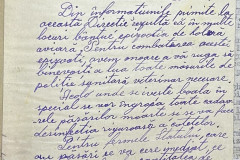 Din informațiunile primite la
această Direcție rezultă că în multe
locuri bântue epizootia de holeră
aviară. Pentru combaterea acestei
epizootii, avem onoare a vă ruga să
binevoiți a lua toate măsurile de
poliție sanitară veterinar necesare.
Acolo unde se ivește boala în
special se vor îngropa toate cadav-
rele păsărilor moarte și se va face
desinfecția riguroasă a cotețelor.
Pentru fermele Statului, care
au păsări se va cere imediat, și